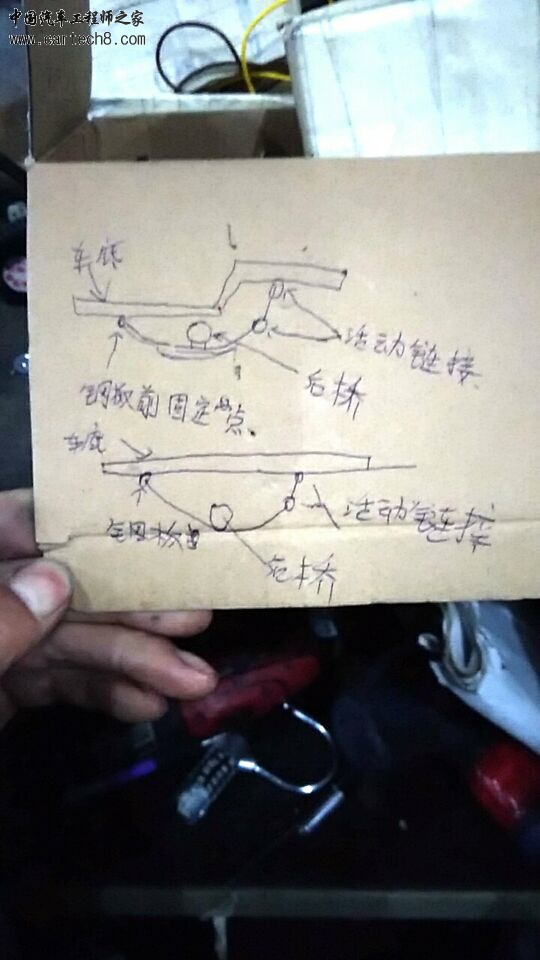 中国汽车工程师之家
www.cartech8.com
车底
活动链接
后桥
钢板前固定点.
车底
活动链接
钢板
后桥